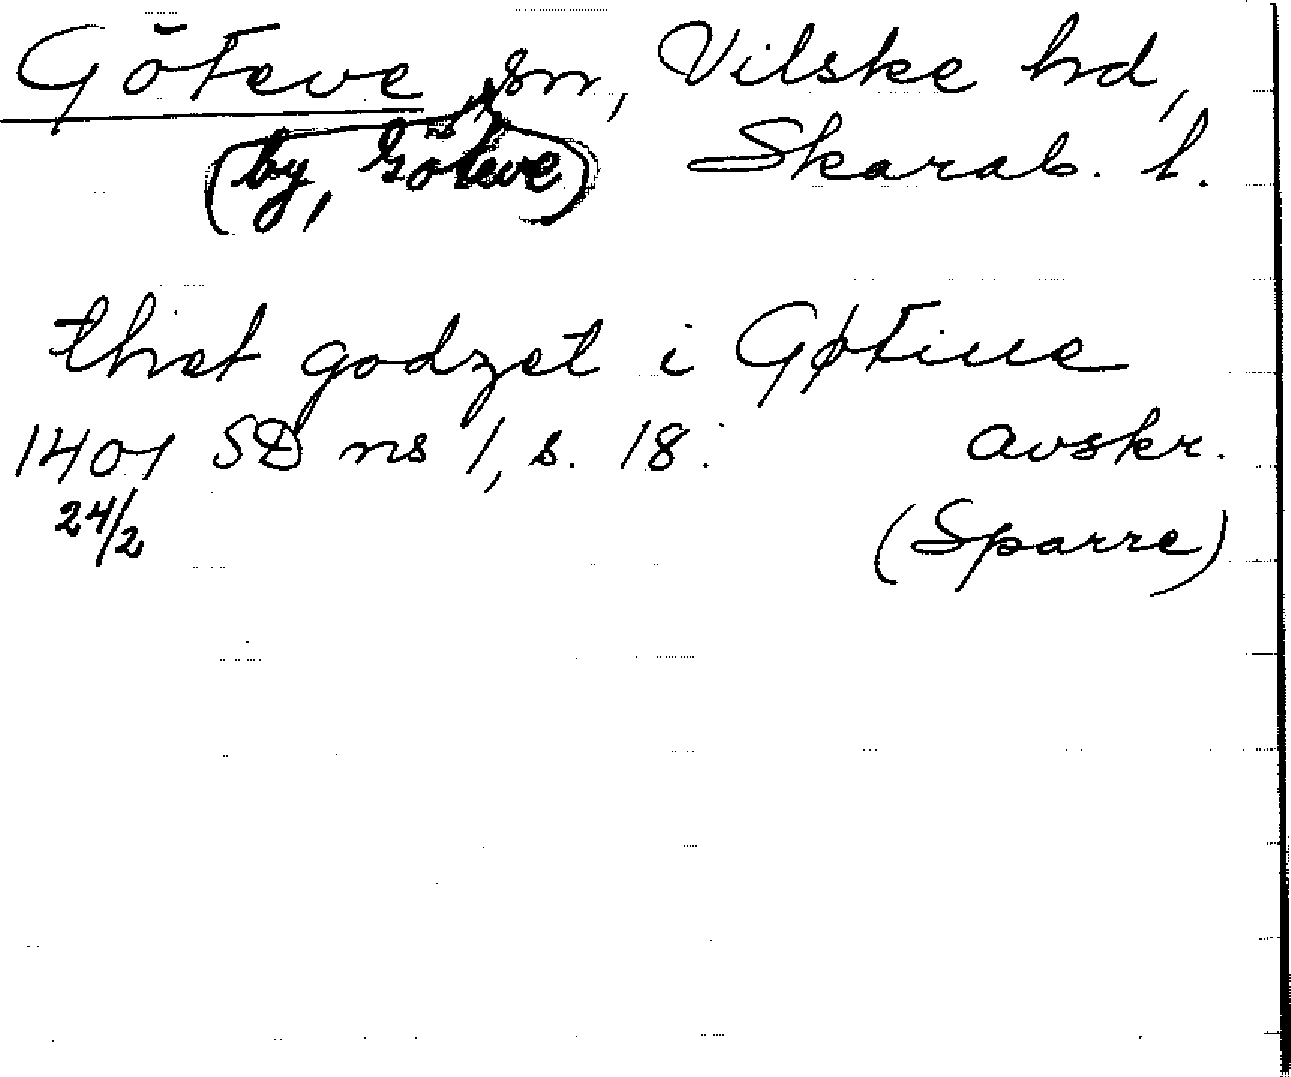 Göteve sn, Vilske hd,
(by, Göteve) Skarab. l.
thet godzet i Gøtiue
1401 SD ns 1, s. 18. avskr.
24/2 (Sparre)